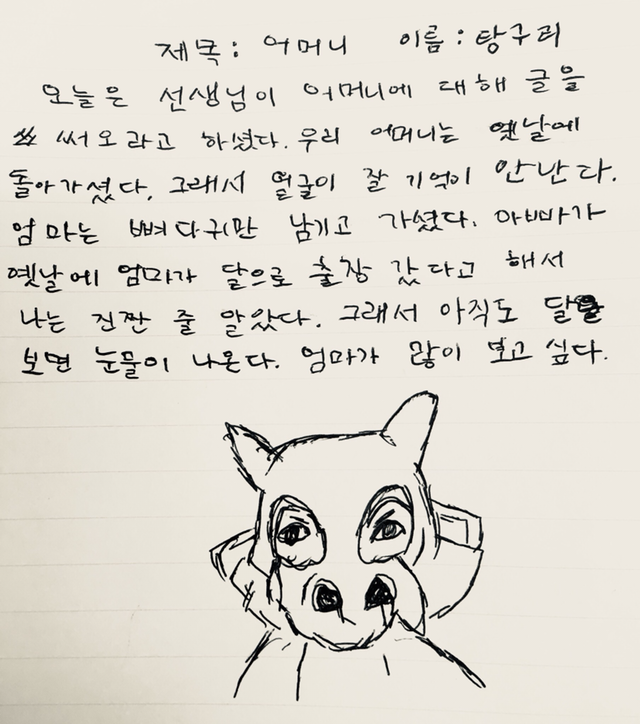 제목: 어머니 이름: 탕구리
오늘은 선생님이 어머니에 대해 글을
써오라고 하셨다. 우리 어머니는 옛날에
돌아가셨다. 그래서 얼굴이 잘 기억이 안난다.
엄마는 뼈다귀만 남기고 가셨다. 아빠가
옛날에 엄마가 달으로 출장 갔다고 해서
나는 진짠 줄 알았다. 그래서 아직도 달을
보면 눈물이 나온다. 엄마가 많이 보고 싶다.